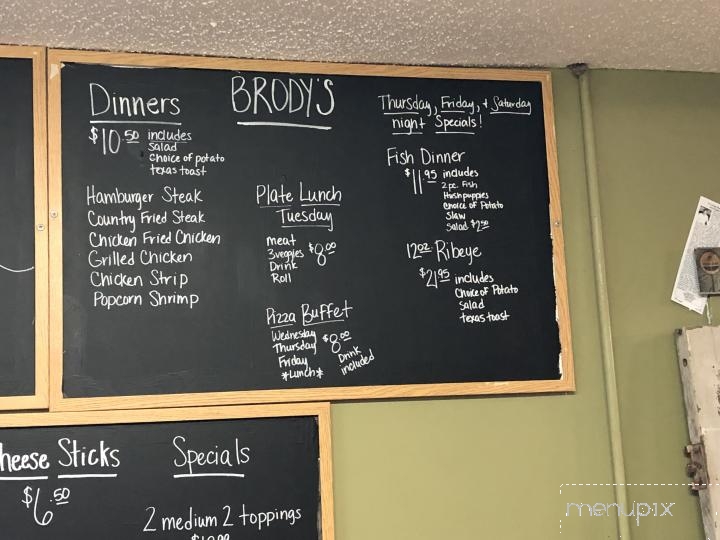 BRODY'S
Dinners
$10.50 includes
Salad
Choice of potato
texas toast
Hamburger Steak
Country Fried Steak
Chicken Fried Chicken
Grilled Chicken
Chicken Strip
Popcorn Shrimp
Plate Lunch
Tuesday
meat
3 veggies
Drink
Roll
$8.00
Pizza Buffet
Wednesday
Thursday
Friday
*Lunch*
$8.00
Drink
included
Thursday, Friday, + Saturday
night Specials!
Fish Dinner
$11.95 includes
2 pc. Fish
Hushpuppies
Choice of Potato
Slaw
Salad $2.50
12oz. Ribeye
$21.95 includes
Choice of Potato
Salad
texas toast
heese Sticks
$6.50
Specials
2 medium 2 toppings
menupix